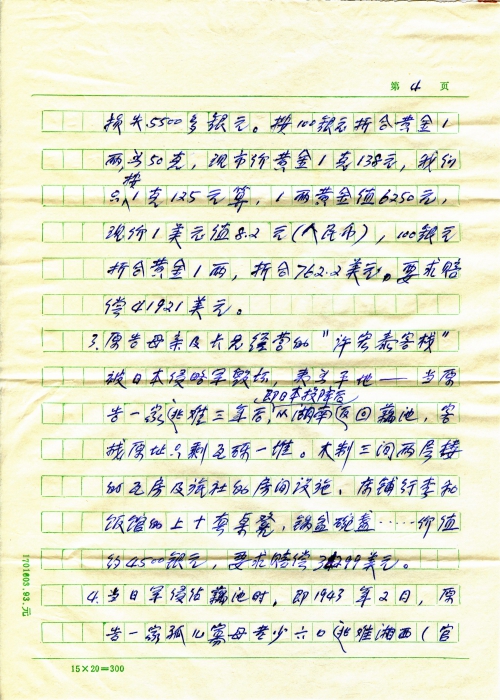 第 4 页
损失5500多银元。按100银元折合黄金1
两为50克,现市价黄金1克138元,我们
只按1克125元算,1两黄金值6250元,
现价1美元值8.2元(人民币),100银元
折合黄金1两,折合762.2美元。要求赔
偿41921美元。
3.原告母亲及大兄经营的“许宏泰客栈”
被日本侵略军毁坏,夷为平地——当原
告一家逃难三年后,即日本投降后从湖南返回藕池,客
栈原址只剩瓦砾一堆。木制三间两层楼
的瓦房及旅社的房间设施、床铺行李和
饭馆的上十套桌凳,锅盆碗盏……价值
约4500银元,要求赔偿34299美元。
4.当日军侵占藕池时,即1943年2月,原
告一家孤儿寡母老少六口逃难湘西(官
1701603.93.元
15×20=300